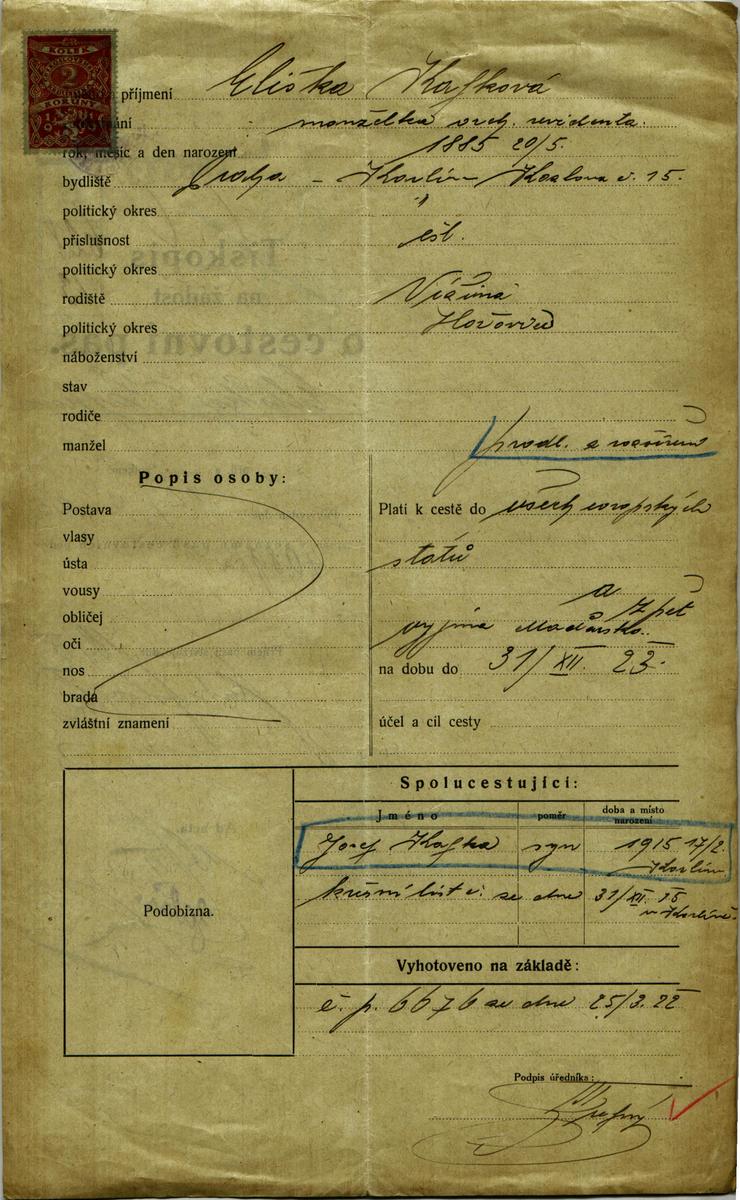 KOLEK
2
KORUNY
příjmení Eliška Kafková
manželka vrch. revidenta.
rok, měsíc a den narození 1885 20/5.
bydliště Praha – Karlín, č. 15.
politický okres "
příslušnost čsl.
politický okres
rodiště
politický okres Hořovice
náboženství
stav
rodiče
manžel prodl. a rozšíření
Popis osoby:
Postava
vlasy
ústa
vousy
obličej
oči
nos
brada
zvláštní znamení
Platí k cestě do všech evropských
států
a zpět
vyjma Maďarsko.
na dobu do 31/XII. 23.
účel a cíl cesty
Podobizna.
Spolucestující:
Jméno poměr doba a místo narození
Josef Kafka syn 1915 17/2.
Karlín
křestní list č. ze dne 31/XII. 15
v Karlíně.
Vyhotoveno na základě:
č. p. 6676 ze dne 25/3. 22
Podpis úředníka: